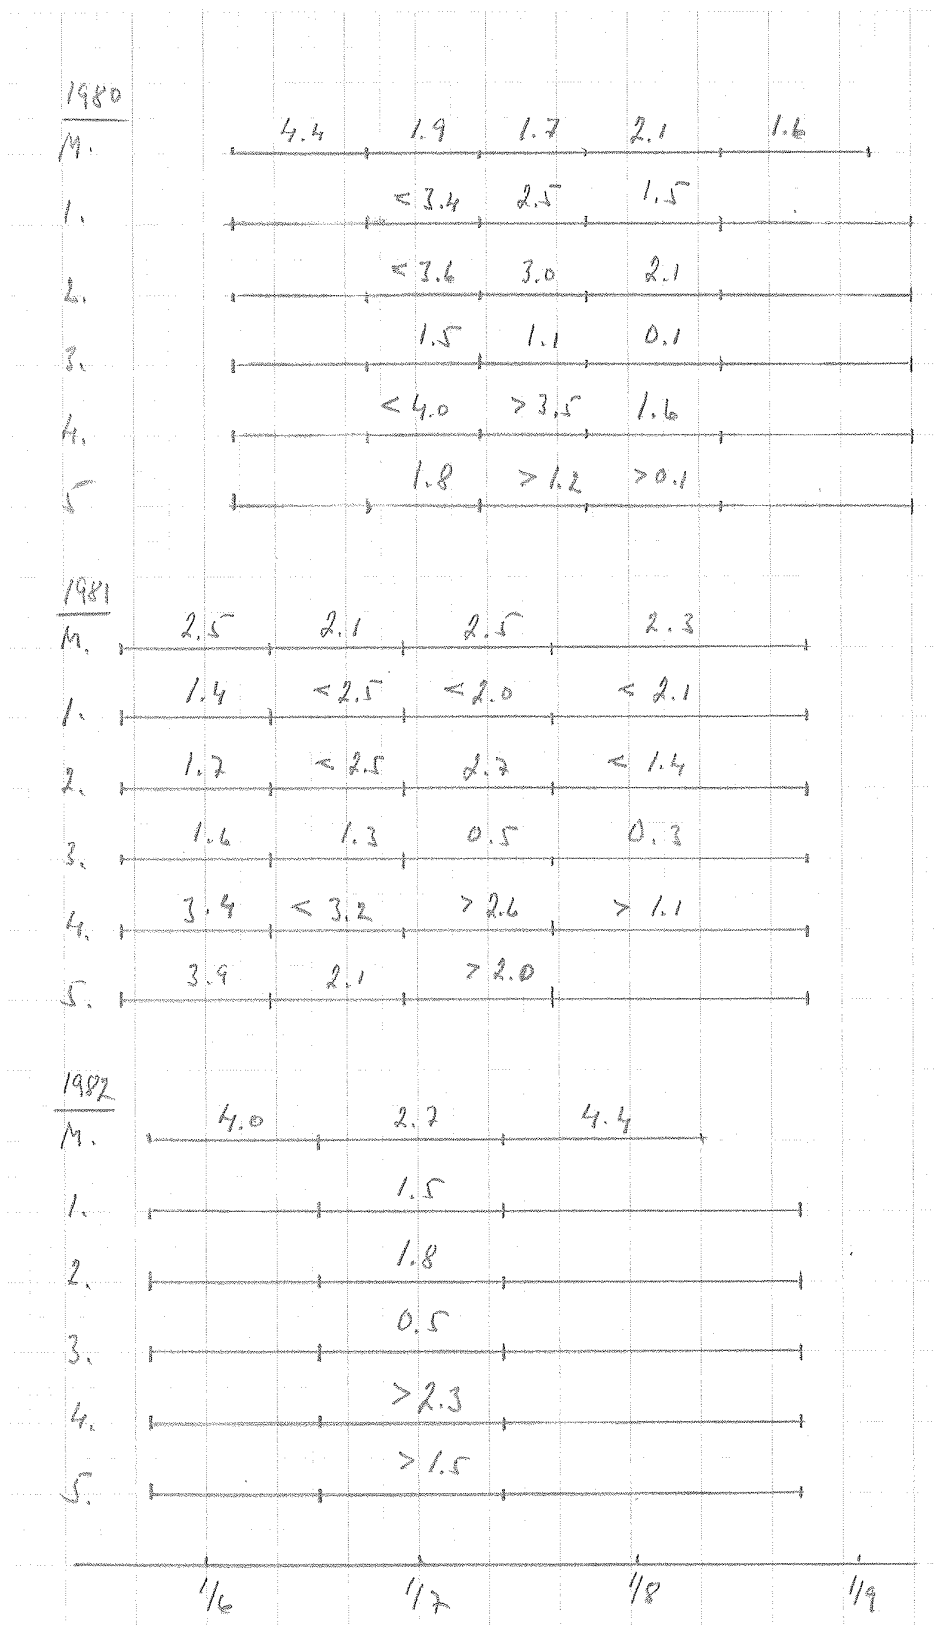 1980
M. 4.4 1.9 1.7 2.1 1.6
1. <3.4 2.5 1.5
2. <3.6 3.0 2.1
3. 1.5 1.1 0.1
4. <4.0 >3.5 1.6
5 1.8 >1.2 >0.1
1981
M. 2.5 2.1 2.5 2.3
1. 1.4 <2.5 <2.0 <2.1
2. 1.7 <2.5 2.7 <1.4
3. 1.6 1.3 0.5 0.3
4. 3.4 <3.2 >2.6 >1.1
5. 3.9 2.1 >2.0
1982
M. 4.0 2.7 4.4
1. 1.5
2. 1.8
3. 0.5
4. >2.3
5. >1.5
1/6 1/7 1/8 1/9